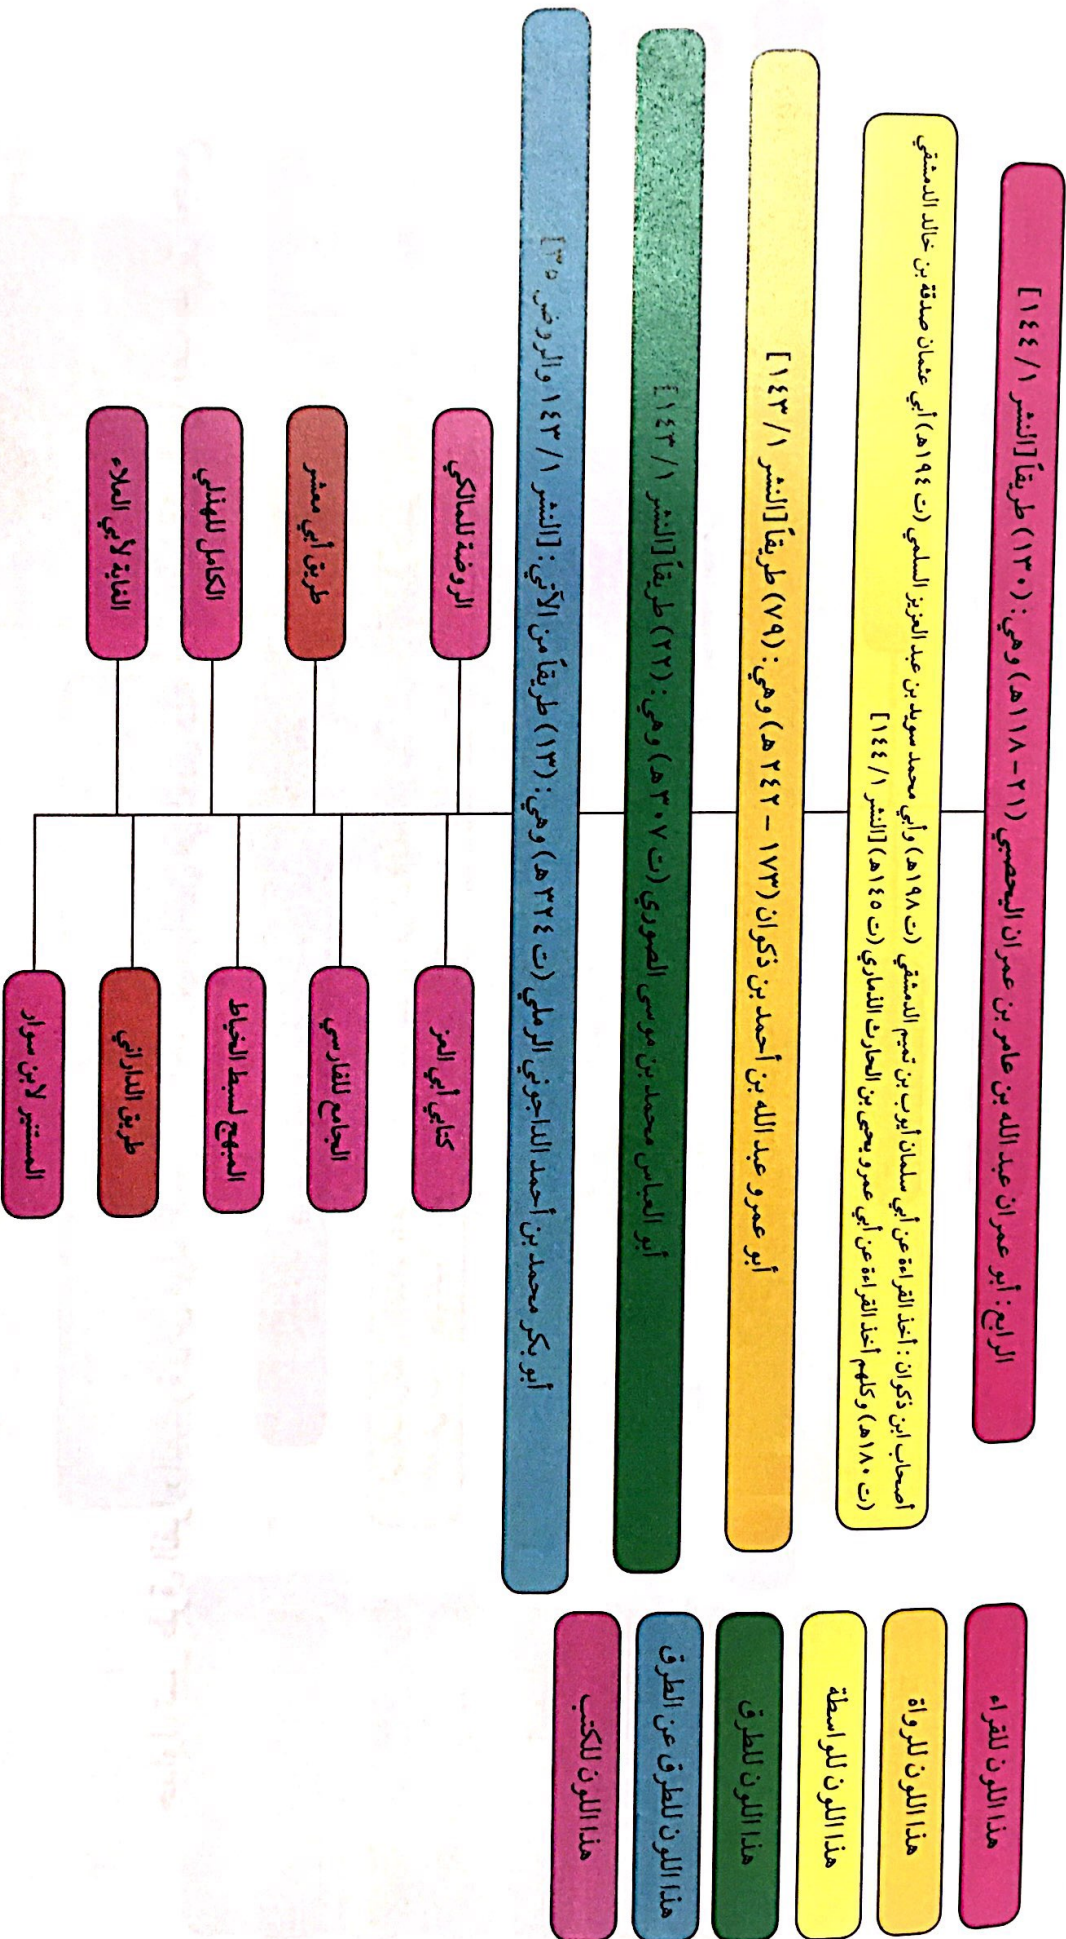 الرابع: أبو عمران عبد الله بن عامر بن عمران اليحصبي (٢١-١١٨هـ) وهي: (١٣٠) طريقاً [النشر ١/ ١٤٤]
أصحاب ابن ذكوان: أخذ القراءة عن أبي سلمان أيوب بن تميم الدمشقي (ت ١٩٨هـ) وأبي محمد سويد بن عبد العزيز السلمي (ت ١٩٤هـ) أبي عثمان صدقة بن خالد الدمشقي
(ت ١٨٠هـ) وكلهم أخذ القراءة عن أبي عمرو يحيى بن الحارث الذماري (ت ١٤٥هـ) [النشر ١/ ١٤٤]
أبو عمرو عبد الله بن أحمد بن ذكوان (١٧٣ - ٢٤٢ هـ) وهي: (٧٩) طريقاً [النشر ١/ ١٤٣]
أبو العباس محمد بن موسى الصوري (ت ٣٠٧هـ) وهي: (٢٢) طريقاً [النشر ١/ ١٤٣]
أبو بكر محمد بن أحمد الداجوني الرملي (ت ٣٢٤هـ) وهي: (١٣) طريقاً من الآتي: [النشر ١/ ١٤٣ والروض ٣٥]
كتابي أبي العز
الروضة للمالكي
الجامع للفارسي
طريق أبي معشر
المبهج لسبط الخياط
الكامل للهذلي
طريق الداراني
الغاية لأبي العلاء
المستنير لابن سوار
هذا اللون للقراء
هذا اللون للرواة
هذا اللون للواسطة
هذا اللون للطرق
هذا اللون للطرق عن الطرق
هذا اللون للكتب